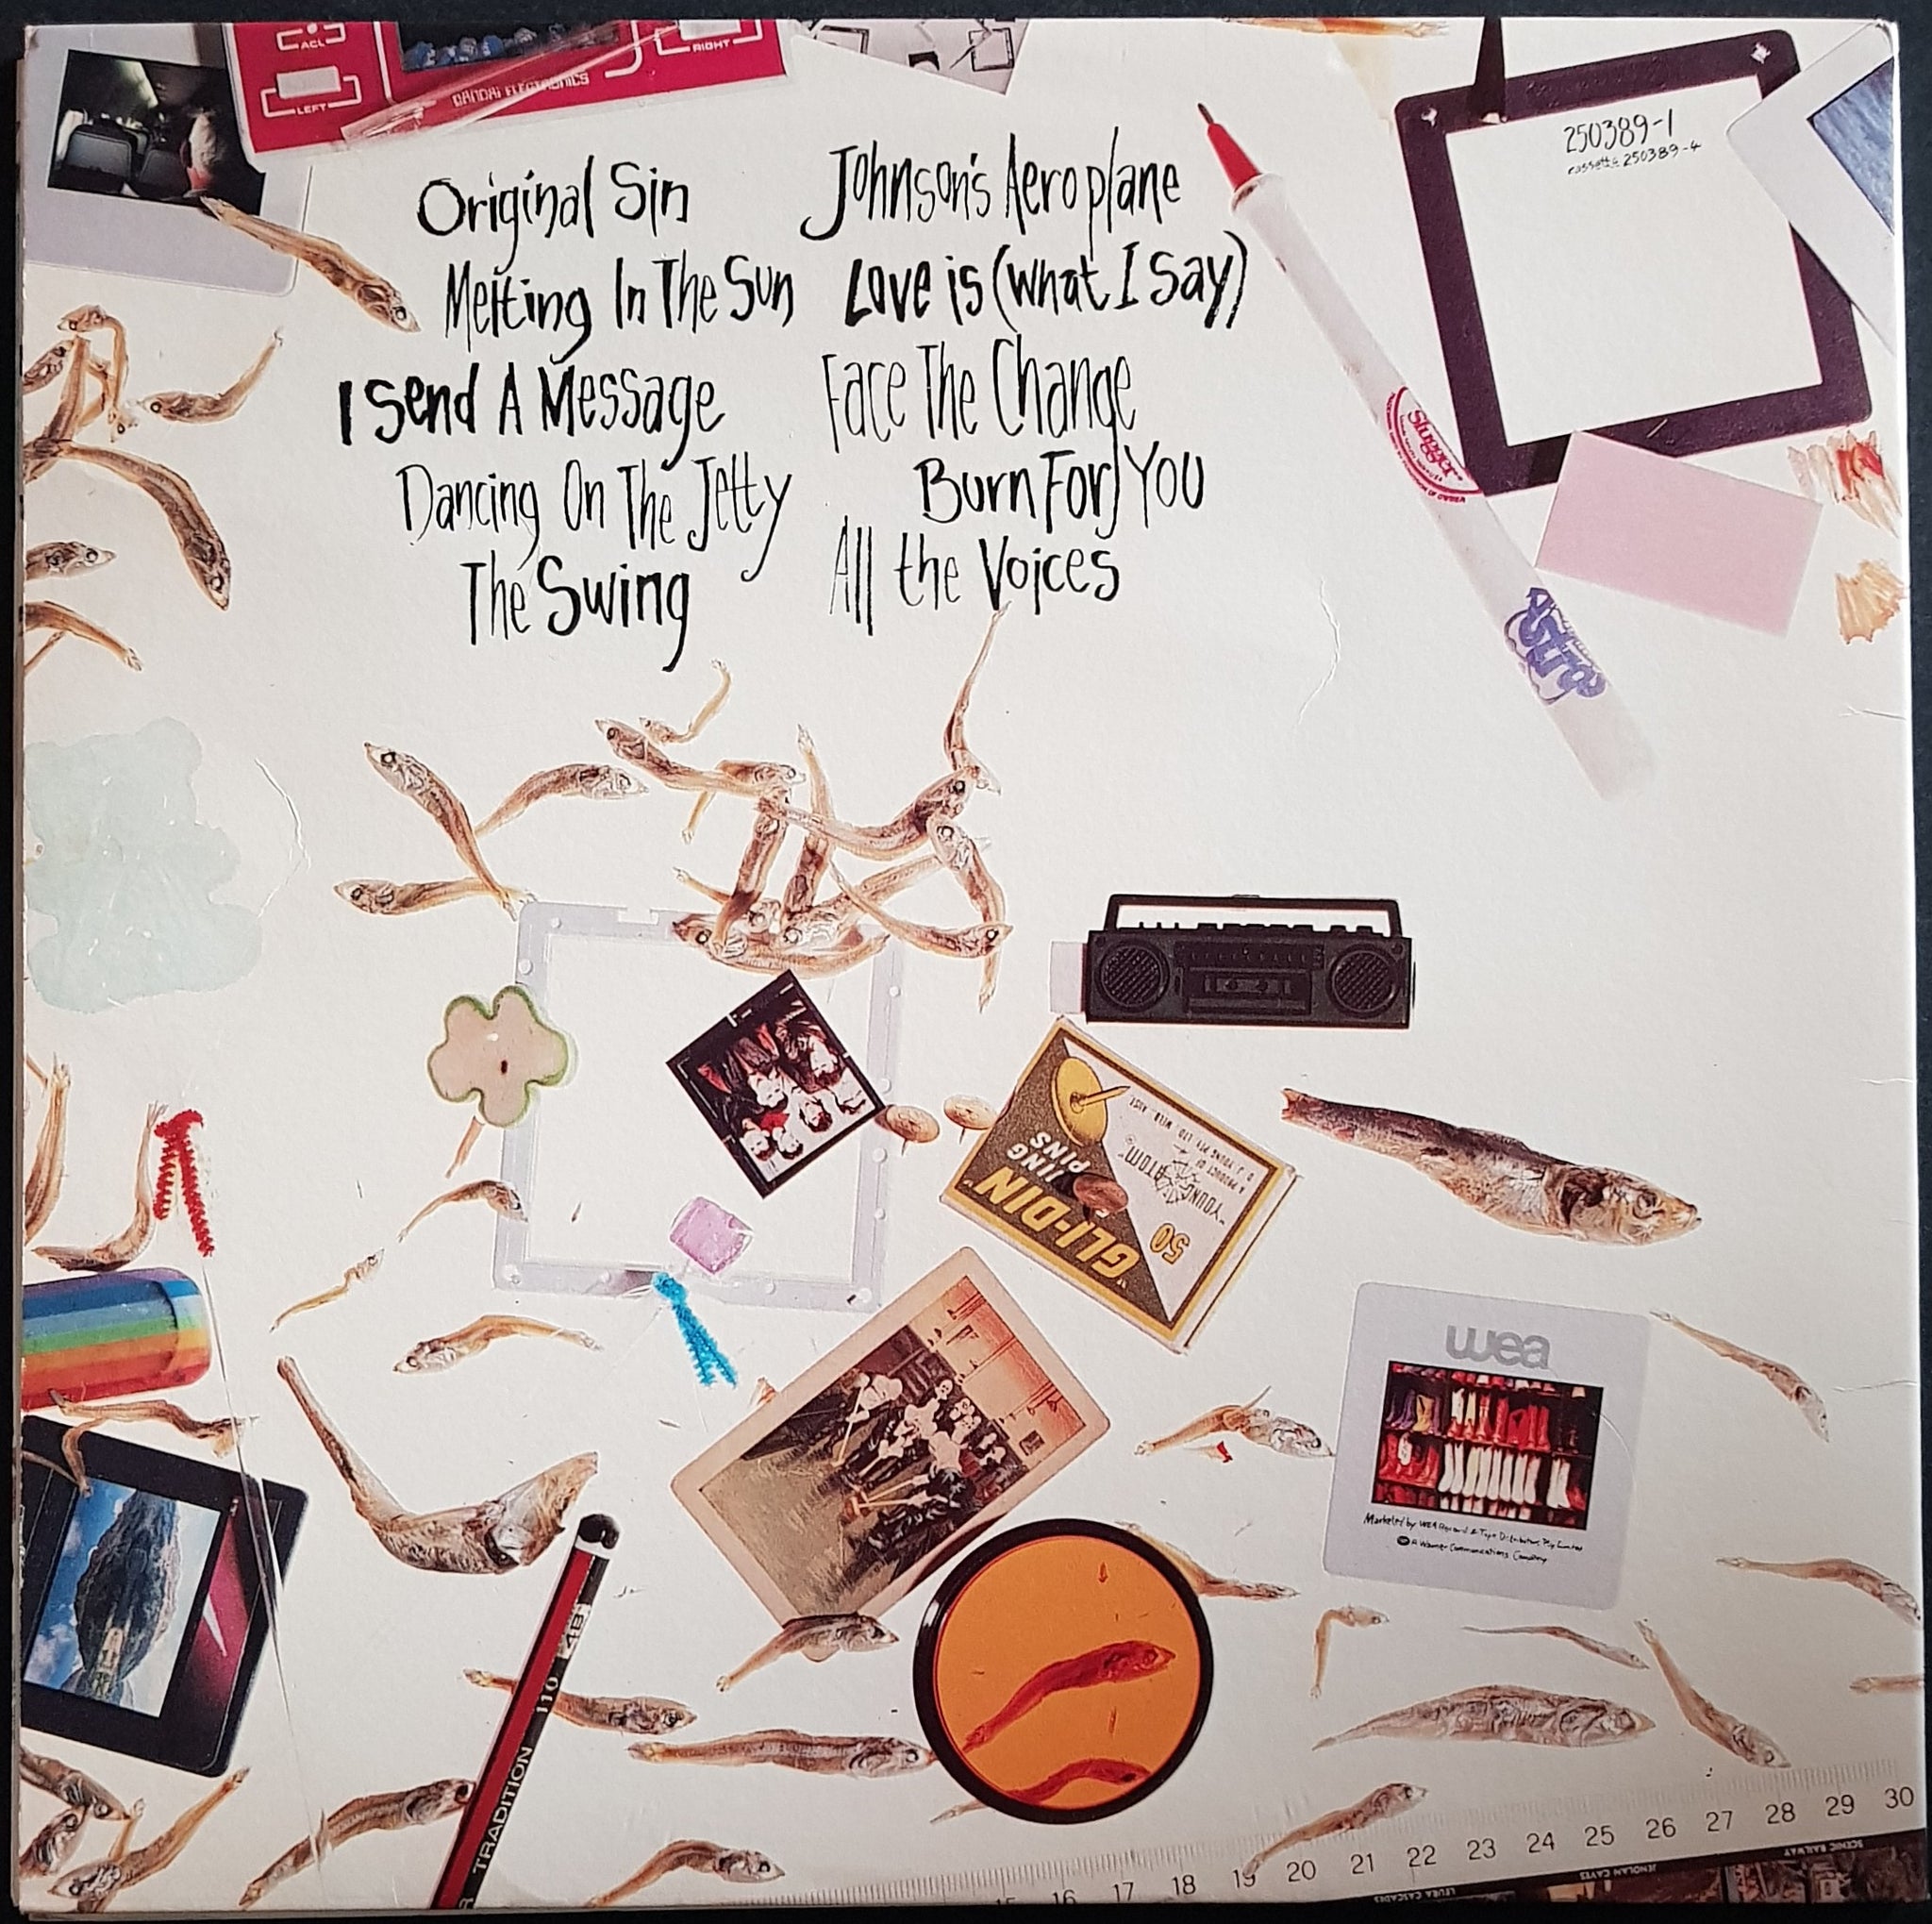 ACL
RIGHT
LEFT
BANDAI ELECTRONICS
250389-1
cassette 250389-4
Original Sin
Melting In The Sun
I Send A Message
Dancing On The Jetty
The Swing
Johnson's Aeroplane
Love is (what I say)
Face The Change
Burn For You
All the Voices
Slugger
Astro
"GLI-DIN"
PINS
50
"YOUNG ATOM"
A PRODUCT OF
D. J. YOUNG PTY. LTD.
wea
Marketed by WEA Record & Tape Distributors Pty Limited
A Warner Communications Company
TRADITION 110 4B
16 17 18 19 20 21 22 23 24 25 26 27 28 29 30
LEURA CASCADES
JENOLAN CAVES
SCENIC RAILWAY